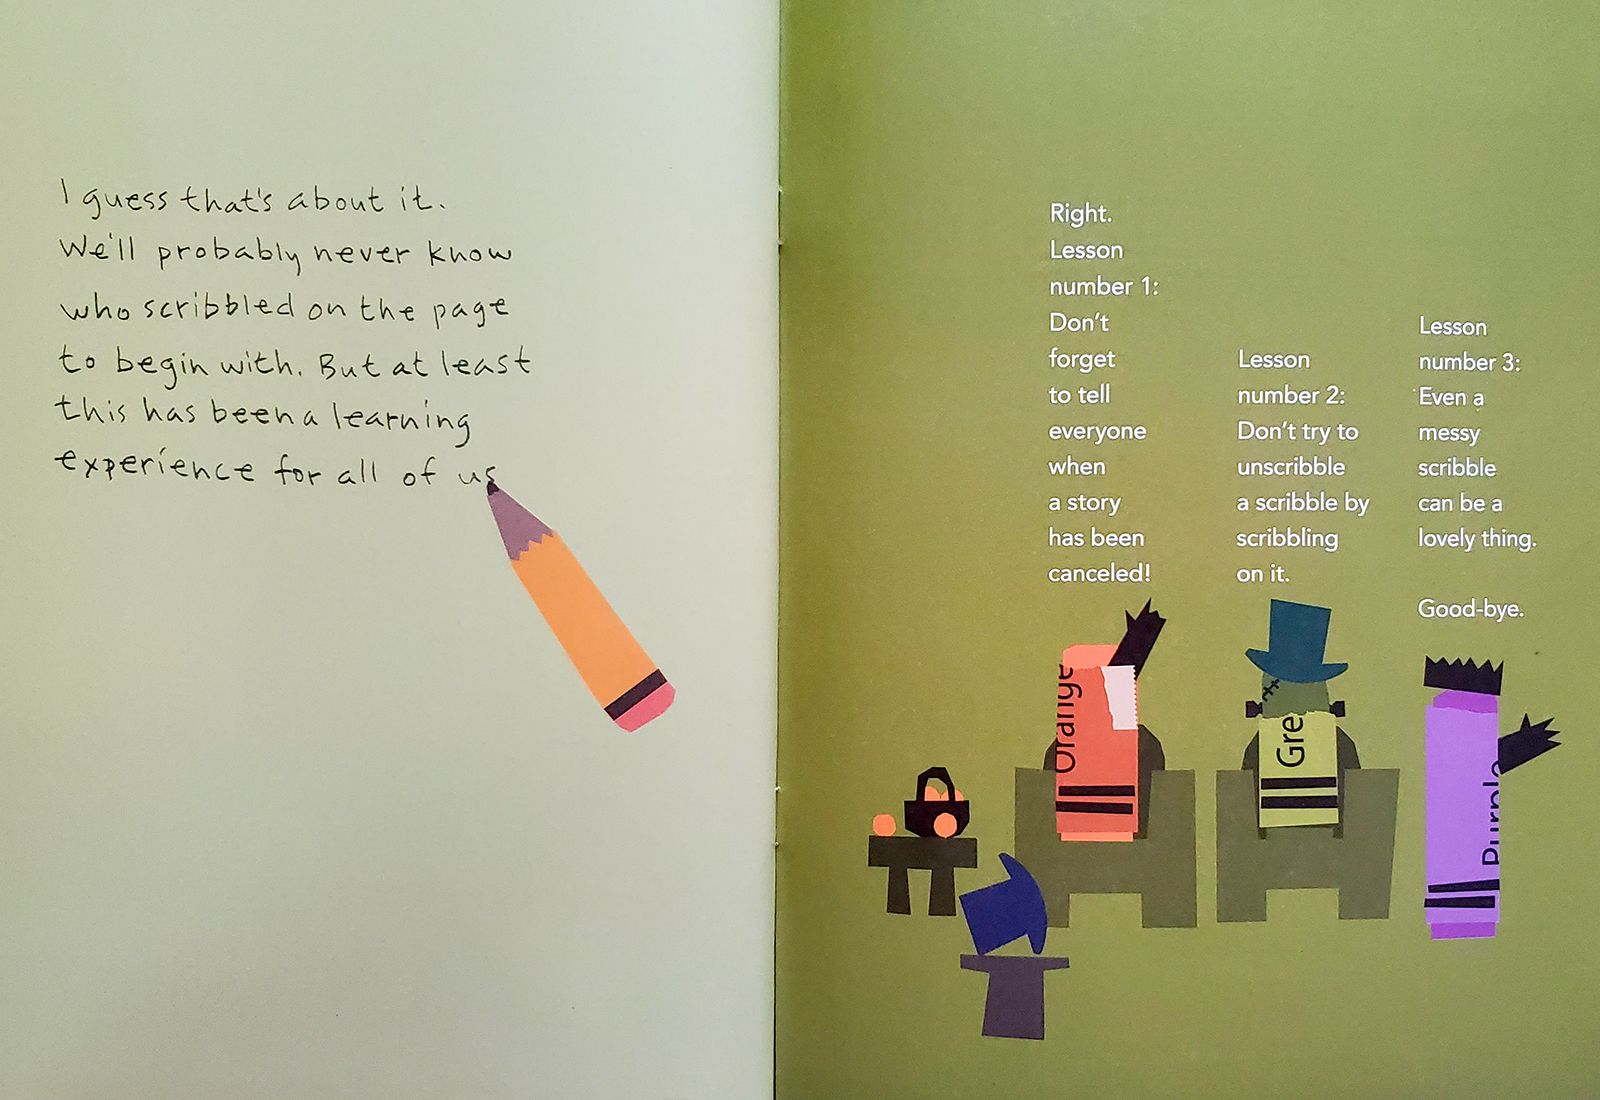 I guess that's about it.
We'll probably never know
who scribbled on the page
to begin with. But at least
this has been a learning
experience for all of us
Right.
Lesson
number 1:
Don't
forget
to tell
everyone
when
a story
has been
canceled!
Lesson
number 2:
Don't try to
unscribble
a scribble by
scribbling
on it.
Lesson
number 3:
Even a
messy
scribble
can be a
lovely thing.
Good-bye.
Orange
Gre
Purple